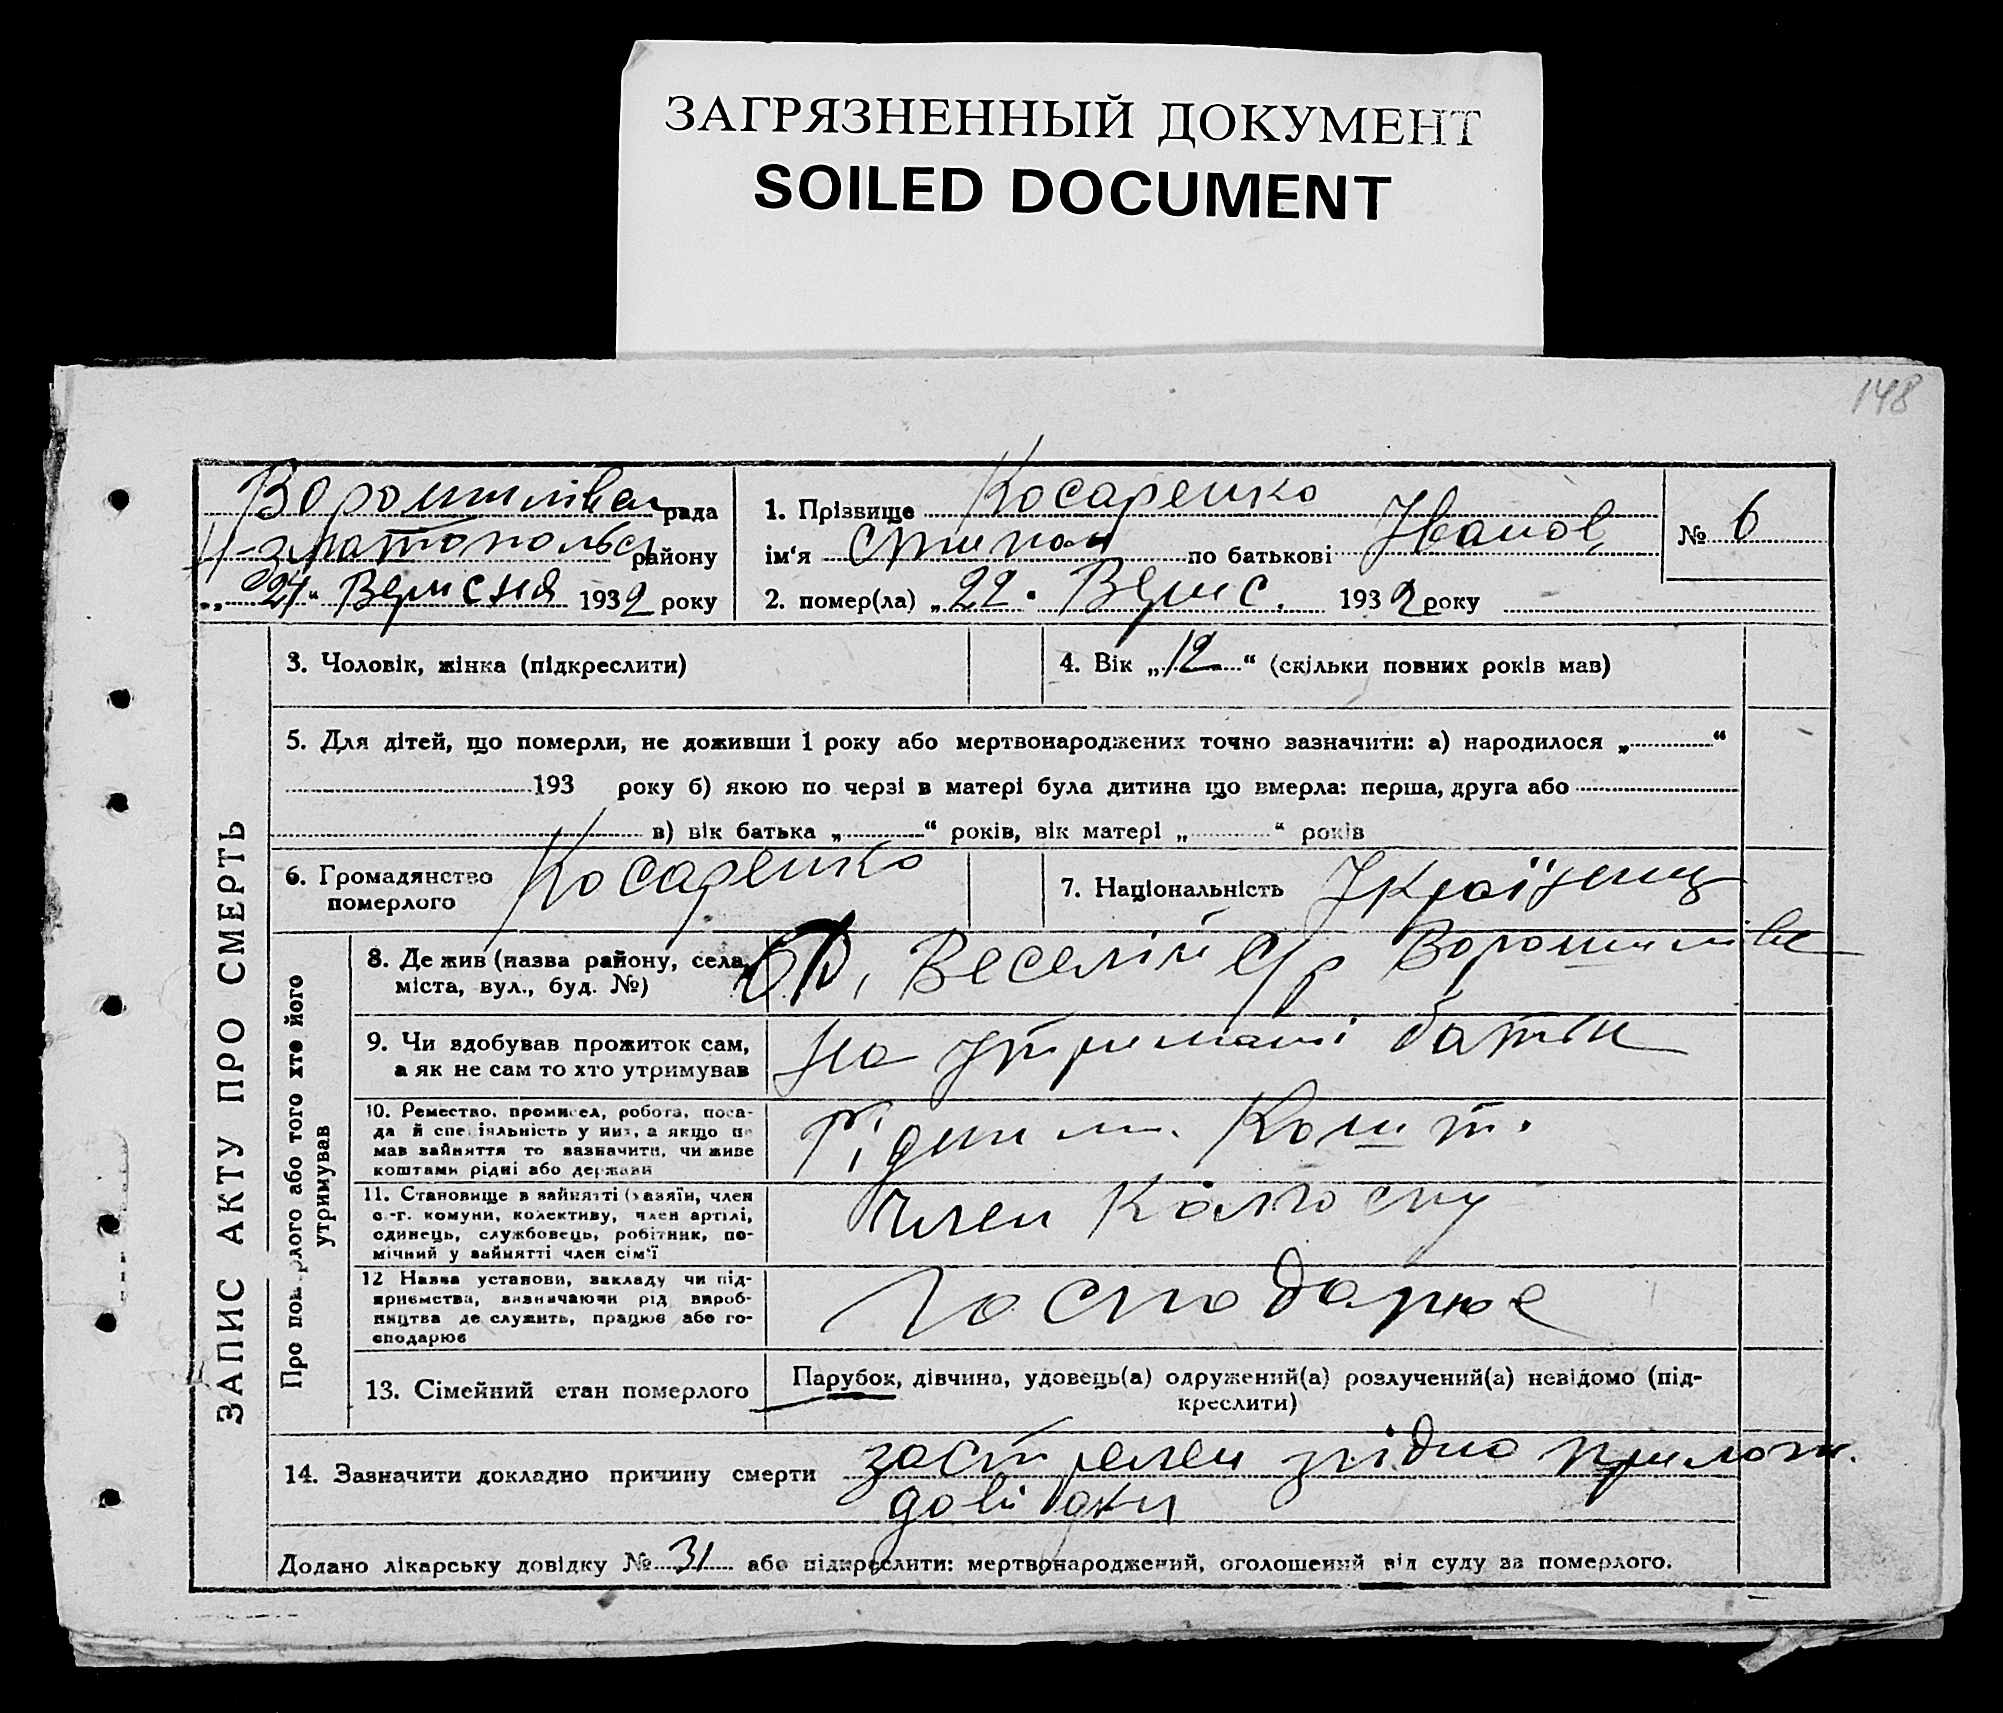 ЗАГРЯЗНЕННЫЙ ДОКУМЕНТ
SOILED DOCUMENT
148
рада
району
„24“ Вересня 1932 року
1. Прізвище Косаренко
ім'я Степан по батькові Іванов
2. помер(ла) „22“ Верес. 1932 року
№ 6
ЗАПИС АКТУ ПРО СМЕРТЬ
3. Чоловік, жінка (підкреслити)
4. Вік „12“ (скільки повних років мав)
5. Для дітей, що померли, не доживши 1 року або мертвонароджених точно зазначити: а) народилося „ “
193 року б) якою по черзі в матері була дитина що вмерла: перша, друга або
в) вік батька „ “ років, вік матері „ “ років
6. Громадянство
померлого Косаренко
7. Національність Українец
Про померлого або того хто його
утримував
8. Де жив (назва району, села,
міста, вул., буд. №)
Веселий с/р Ворошилівс
9. Чи вдобував прожиток сам,
а як не сам то хто утримував
на утриманні батьк
10. Ремество, промисел, робота, поса-
да й спеціяльність у них, а якщо не
мав зайняття то вазначити, чи живе
коштами рідні або держави
Рідним. Кошт.
11. Становище в зайнятті (хазяїн, член
с.-г. комуни, колективу, член артілі,
одинець, службовець, робітник, по-
мічний у зайнятті член сім'ї
Член Колгоспу
12 Назва установи, закладу чи під-
приємства, визначаючи рід вироб-
ництва де служить, працює або го-
сподарює
Господарює
13. Сімейний стан померлого
Парубок, дівчина, удовець(а) одружений(а) розлучений(а) невідомо (під-
креслити)
14. Зазначити докладно причину смерти застрелен згідно прилож.
довідки
Додано лікарську довідку № 31 або підкреслити: мертвонароджений, оголошений від суду за померлого.